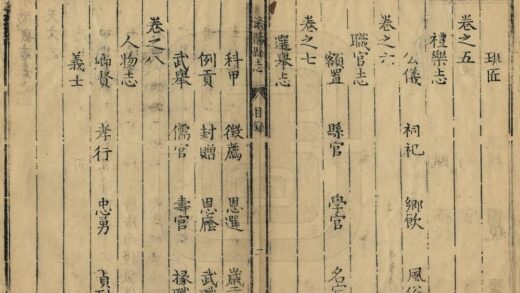 班匠
卷之五
禮樂志
公儀 祠祀 鄉飲 風俗
卷之六
職官志
額置 縣官 學官 名宦
卷之七
選舉志
縣志 目録
科甲 徵薦 恩選
例貢 封贈 恩廕 武職
武舉 儒官 壽官 掾職
卷之八
人物志
鄉賢 孝行 忠勇
義士